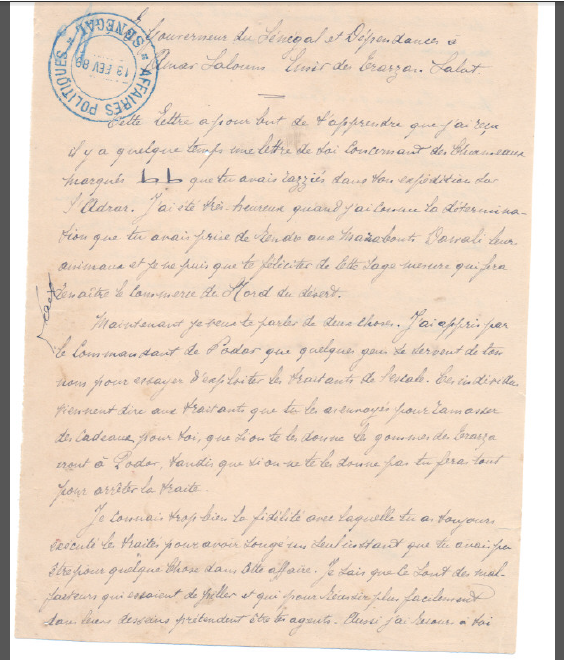 Gouverneur du Sénégal et Dépendances à
Amar Saloum Emir des Trarzas. Salut.
AFFAIRES POLITIQUES
SENEGAL
13 FEV 89
Cette lettre a pour but de t'apprendre que j'ai reçu
il y a quelque temps une lettre de toi concernant des Chameaux
marqués que tu avais razziés dans ton expédition de
l'Adrar. J'ai été très heureux quand j'ai connu la détermina-
tion que tu avais prise de rendre aux Marabouts Dowali leurs
animaux et je ne puis que te féliciter de cette sage mesure qui fera
renaître le commerce du Nord du désert.
Maintenant je veux te parler de deux choses. J'ai appris par
le Commandant de Podor que quelques gens se servent de ton
nom pour essayer d'exploiter les traitants de l'escale. Ces individus
viennent dire aux traitants que tu les as envoyés pour ramasser
des Cadeaux pour toi, que si on te les donne les gommes des Trarza
iront à Podor, tandis que si on ne te les donne pas tu feras tout
pour arrêter la traite.
Je connais trop bien la fidélité avec laquelle tu as toujours
exécuté les traités pour avoir songé un seul instant que tu avais pu
être pour quelque chose dans cette affaire. Je sais que ce sont des mal-
faiteurs qui essaient de piller et qui pour réussir plus facilement
dans leurs desseins prétendent être tes agents. Aussi j'ai recours à toi